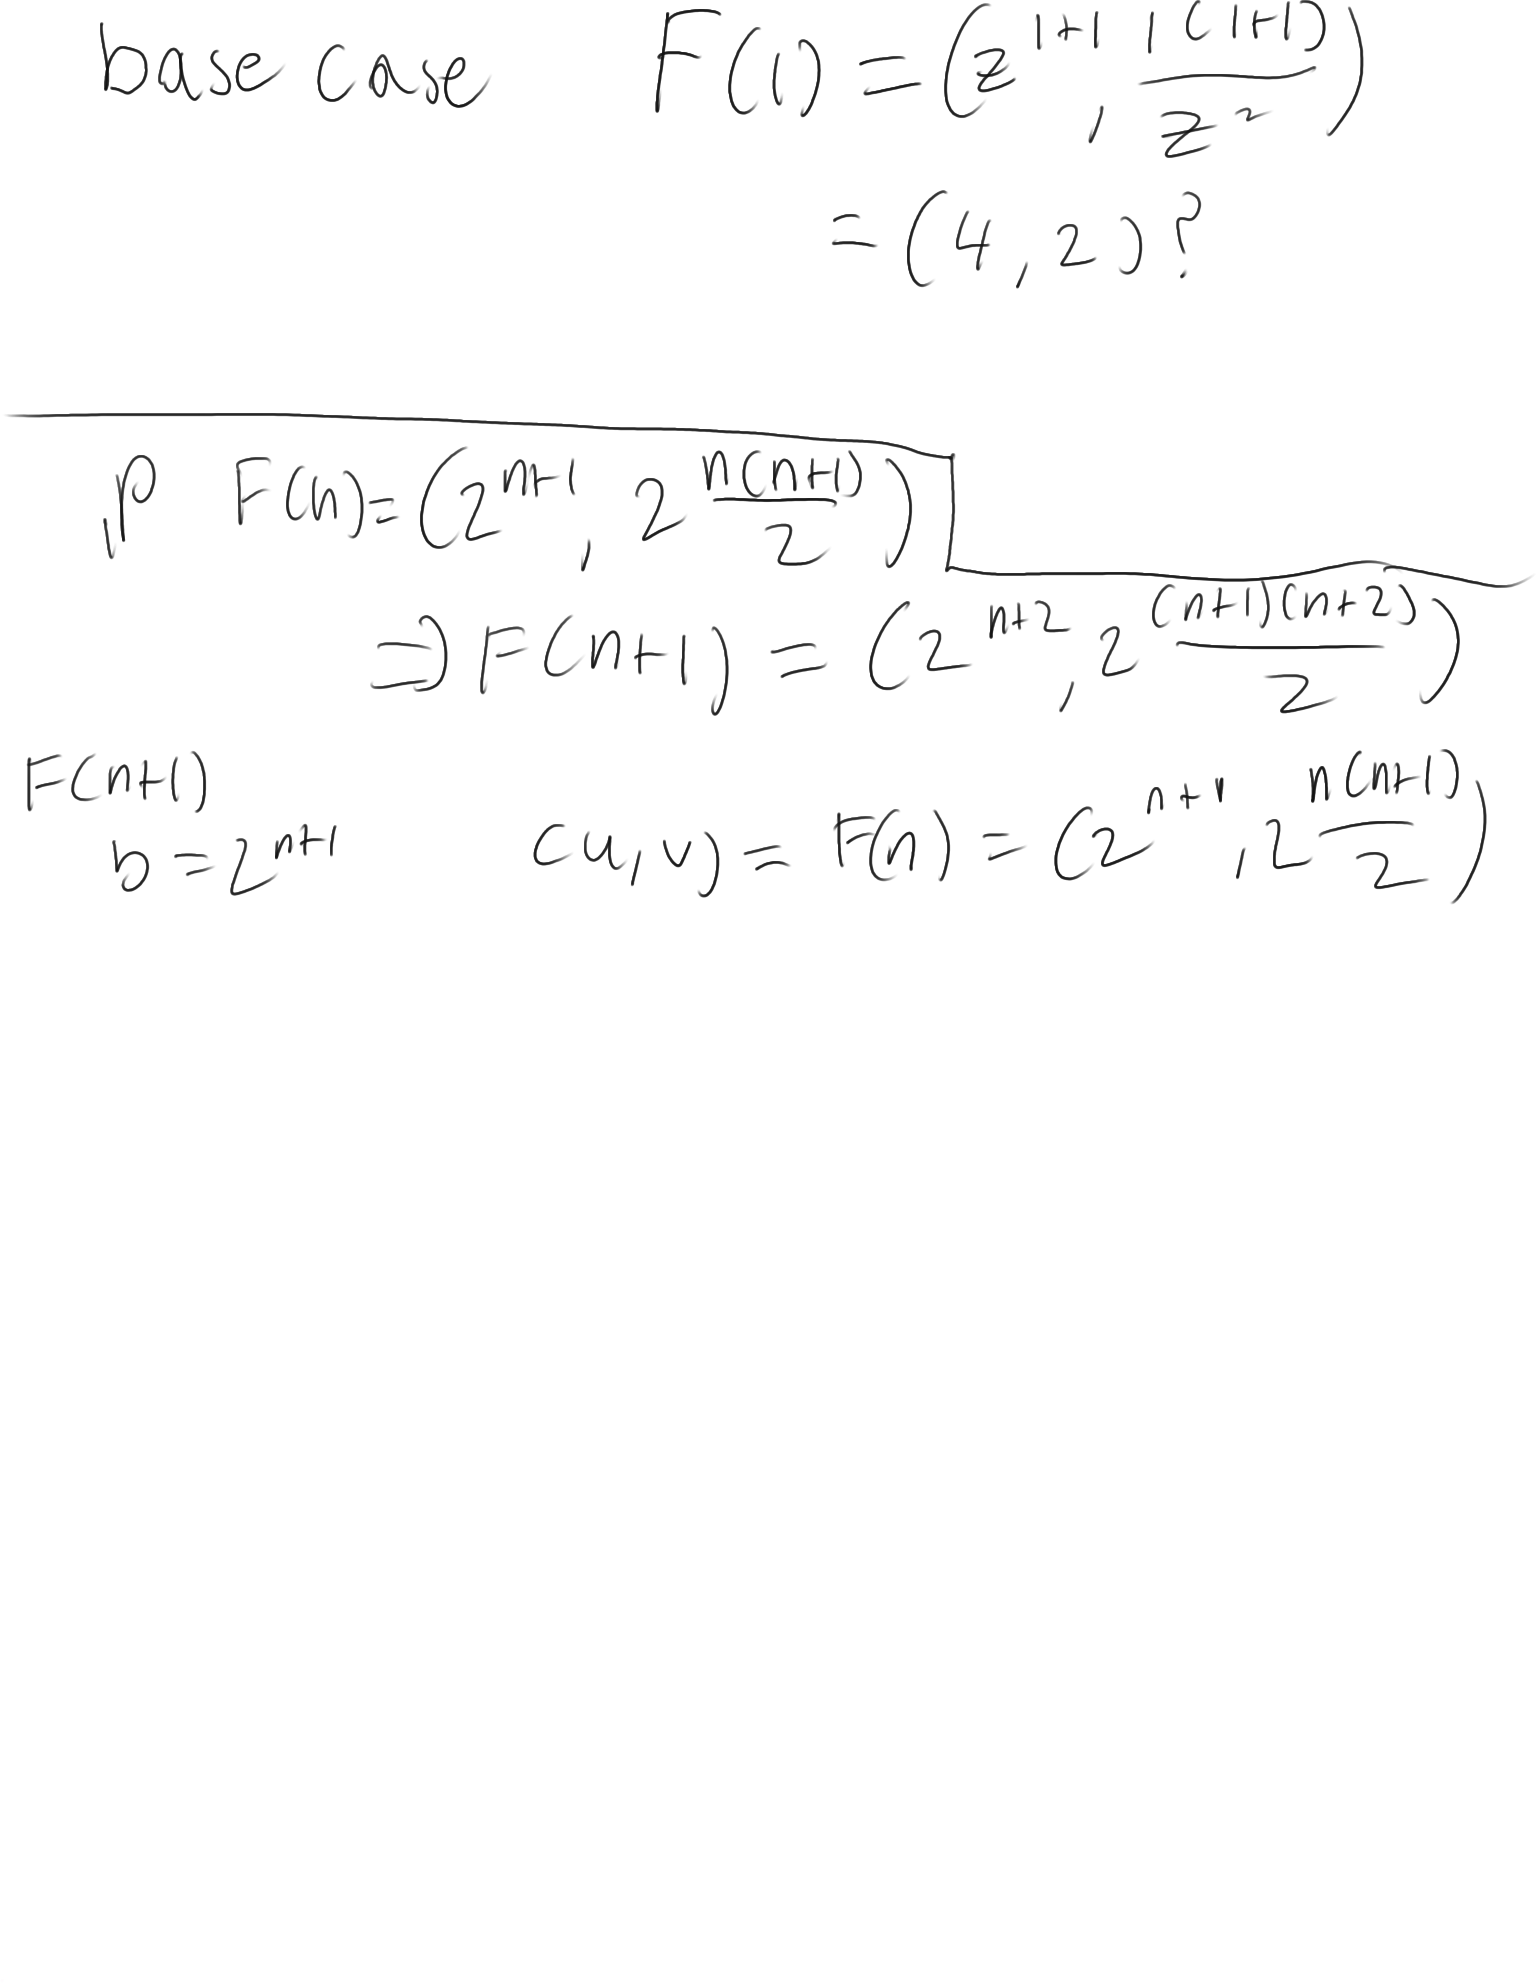 base case F(1) = (z^{1+1}, \frac{1(1+1)}{z^2})
= (4, 2)?
P F(n) = (2^{n+1}, 2^{\frac{n(n+1)}{2}})
⇒ F(n+1) = (2^{n+2}, 2^{\frac{(n+1)(n+2)}{2}})
F(n+1)
b = 2^{n+1} (u, v) = F(n) = (2^{n+1}, 2^{\frac{n(n+1)}{2}})